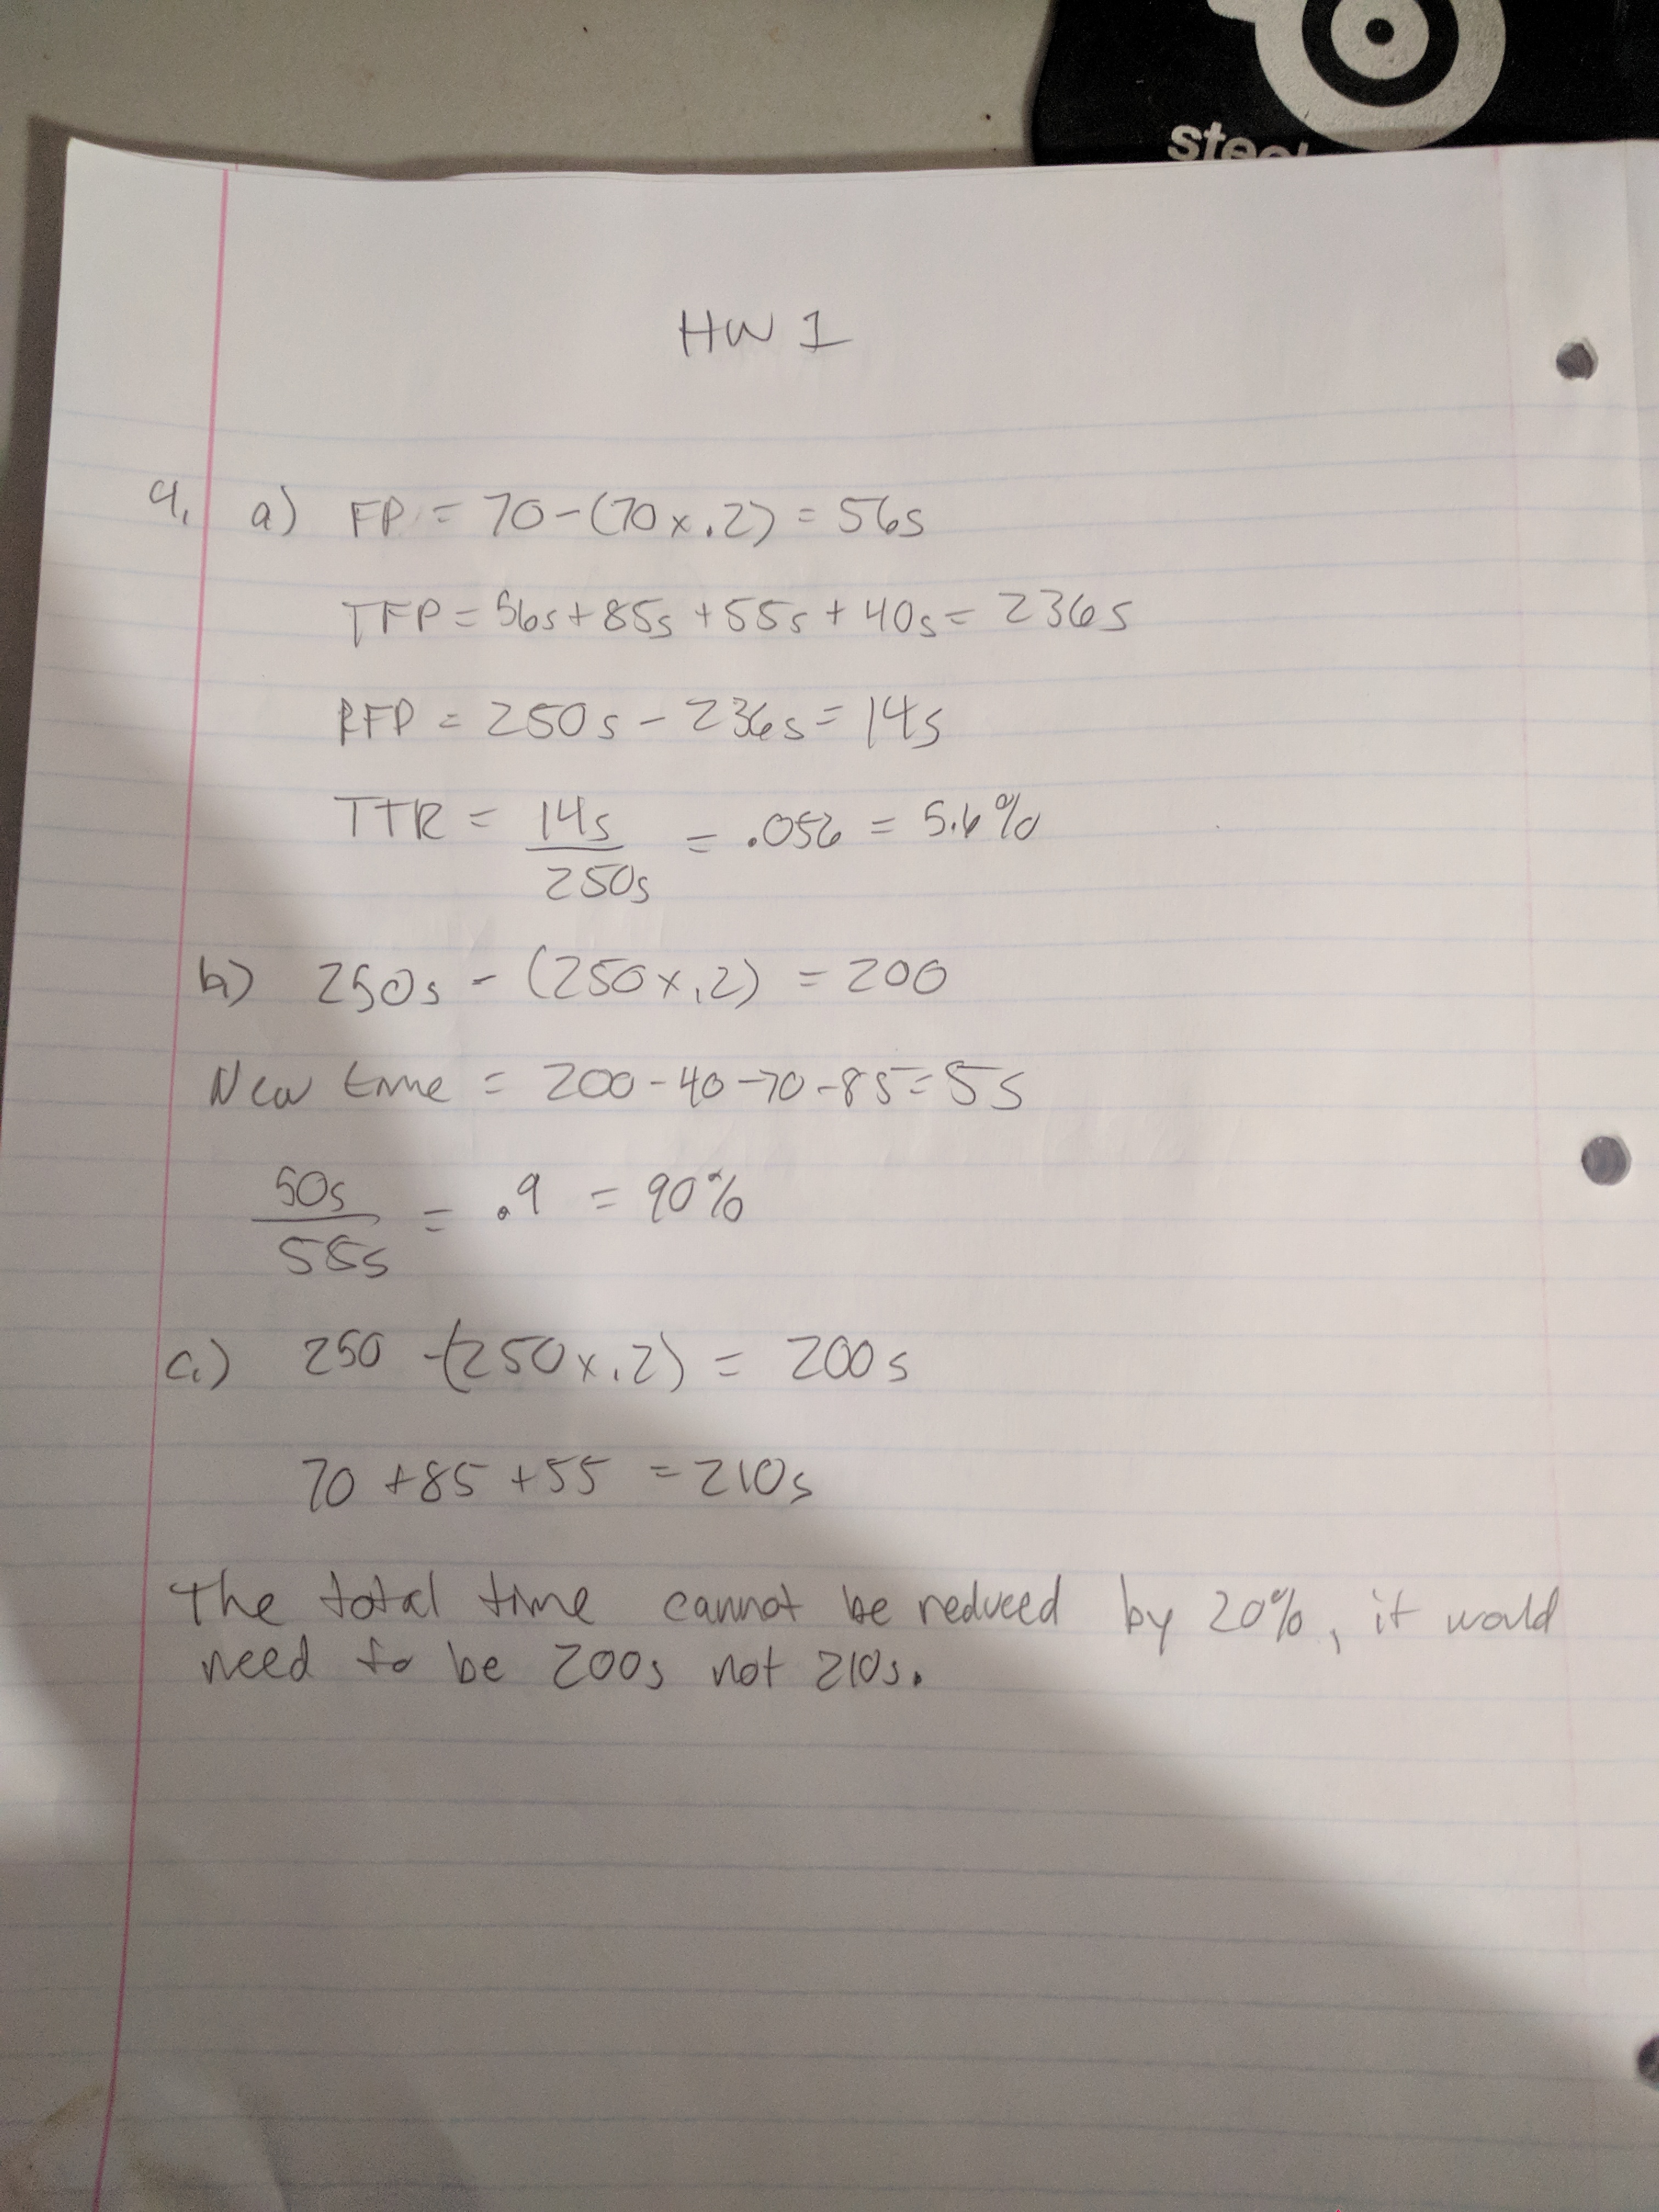 steel
HW 1
9. a) FP = 70-(70x.2) = 56s
TFP = 56s+85s+55s+40s = 236s
RFP = 250s - 236s = 14s
TTR = 14s/250s = .056 = 5.6%
b) 250s - (250x.2) = 200
New time = 200-40-70-85=5s
50s/55s = .9 = 90%
c.) 250 -(250x.2) = 200s
70+85+55 = 210s
The total time cannot be reduced by 20%, it would
need to be 200s not 210s.